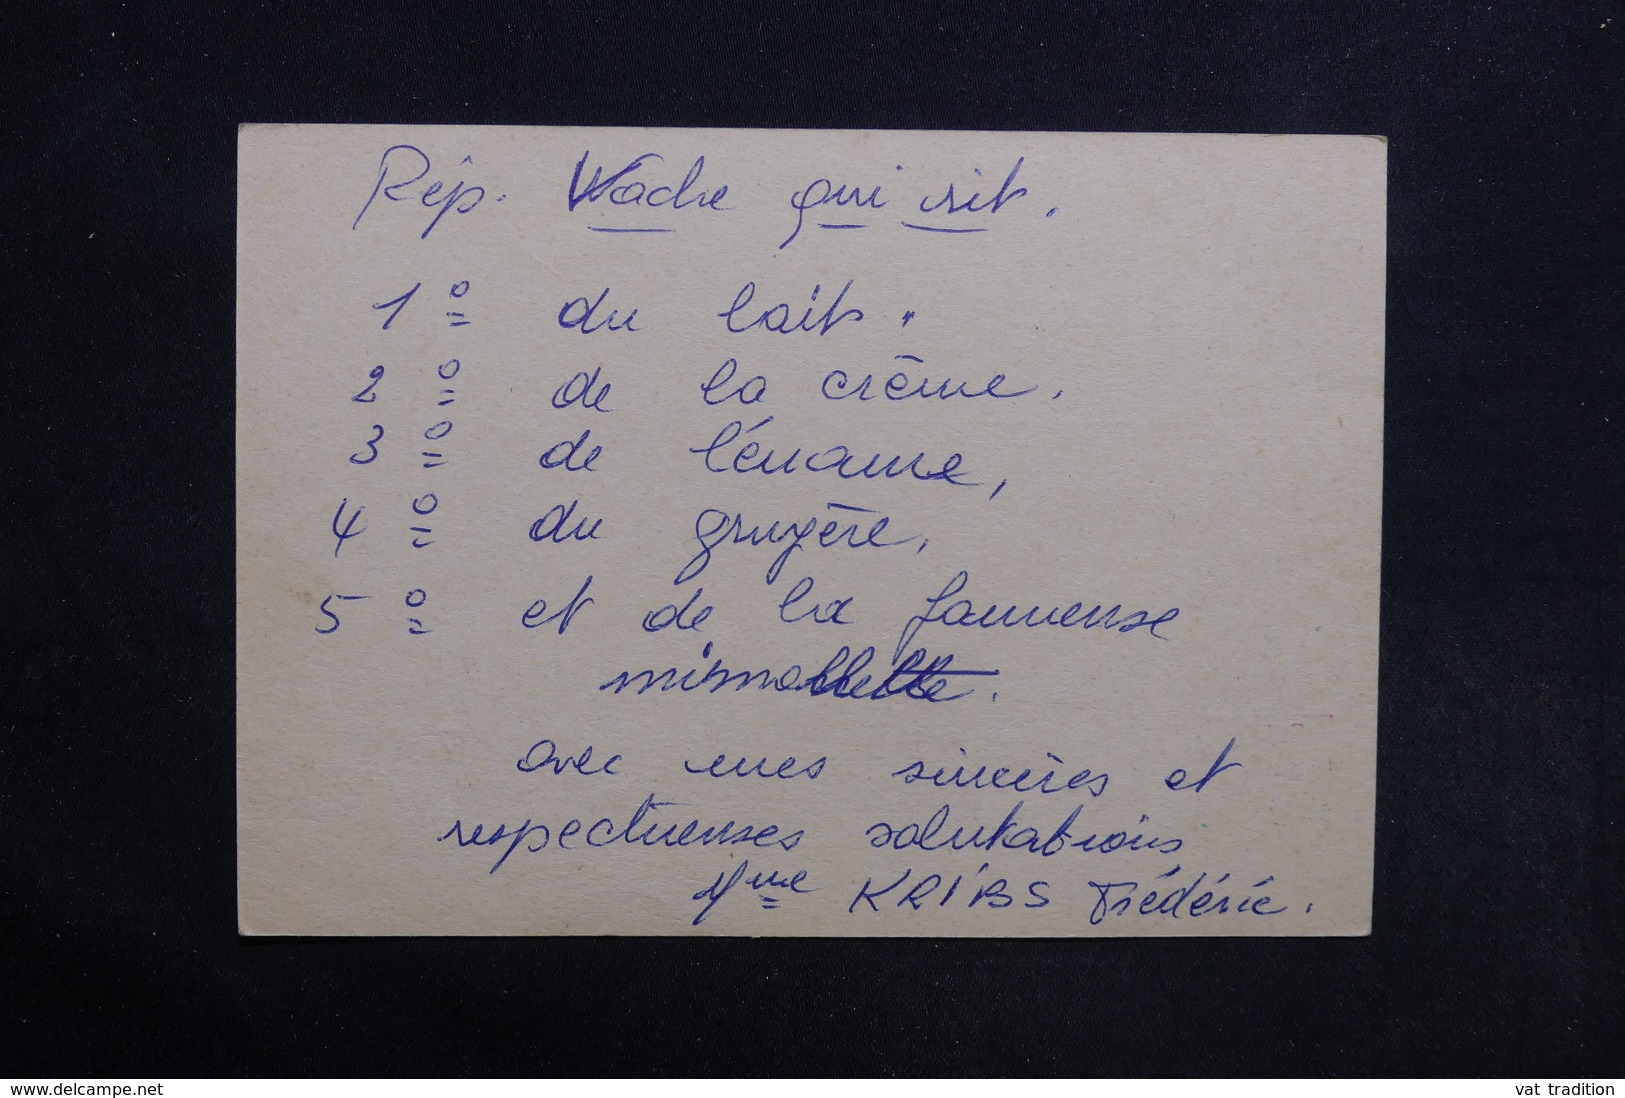 Rép. Wache qui rit.
1º du lait.
2º de la crème.
3º de l'émame,
4º du gruyère.
5º et de la fameuse
mimollette.
avec mes sincères et
respectueuses salutations
Mme KRIBS Frédéric.
www.delcampe.net
vat tradition